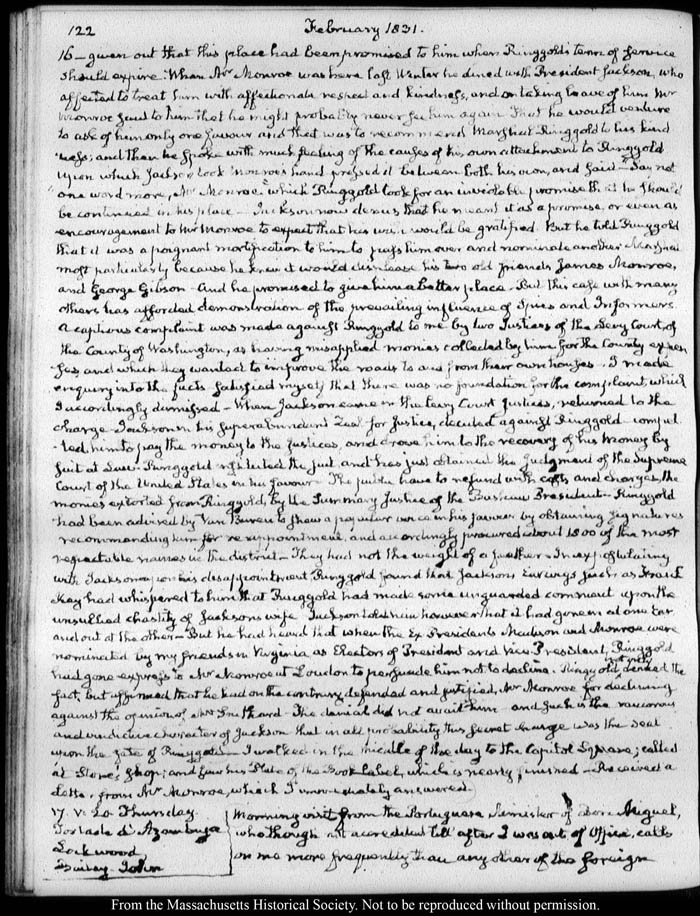 122 February 1831.
16 — given out that this place had been promised to him when Ringgold's term of service
should expire. When Mr Monroe was here last Winter he dined with President Jackson, who
affected to treat him with affectionate respect and kindness, and on taking leave of him Mr
Monroe said to him that he might probably never see him again. That he would venture
to ask of him only one favour and that was to recommend Marshal Ringgold to his kind
ness; and then he spoke with much feeling of the causes of his own attachment to Ringgold
upon which Jackson took Monroe's hand pressed it between both his own, and said "Say not
one word more, Mr Monroe" which Ringgold took for an inviolable promise that he should
be continued in his place — Jackson now denies that he meant it as a promise, or even as
encouragement to Mr Monroe to expect that his wish would be gratified. But he told Ringgold
that it was a poignant mortification to him to pass him over and nominate another Marshal
most particularly because he knew it would displease his two old friends James Monroe,
and George Gibson — And he promised to give him a better place — But this case with many
others has afforded demonstration of the prevailing influence of Spies and Informers.
A captious complaint was made against Ringgold to me by two Justices of the Levy Court, of
the County of Washington, as having misapplied monies collected by him for the County expen
ses, and which they wanted to improve the roads to and from their own houses. I made
enquiry into the facts satisfied myself that there was no foundation for the complaint, which
I accordingly dismissed — When Jackson came in the Levy Court Justices, returned to the
charge — Jackson in his superabundant Zeal for Justice, decided against Ringgold — compel
led him to pay the money to the Justices, and drove him to the recovery of his Money by
suit at Law — Ringgold instituted the suit and has just obtained the Judgment of the Supreme
Court of the United States in his favour. The public have to refund with costs and charges, the
monies extorted from Ringgold, by the Summary Justice of the President — Ringgold
had been advised by Van Buren to shew a popular voice in his favour by obtaining signatures
recommending him for re-appointment, and accordingly procured about 1800 of the most
respectable names in the district — They had not the weight of a feather — In expostulating
with Jackson upon his disappointment Ringgold found that Jackson's such as Frank
Key had whispered to him that Ringgold had made some unguarded comment upon the
unsullied chastity of Jackson's wife — Jackson told him however that it had gone in at one Ear
and out at the other — But he had heard that when the Ex Presidents Madison and Monroe were
nominated by my friends in Virginia as Electors of President and Vice President, Ringgold
had gone express to Mr Monroe at Loudon to persuade him not to decline. Ringgold not only denied the
fact, but affirmed that he had on the contrary defended and justified, Mr Monroe for declining
against the opinion of Mr Southard — The denial did not avail him — and such is the rancorous
and vindictive character of Jackson that in all probability this secret charge was the seal
upon the fate of Ringgold — I walked in the middle of the day to the Capitol Square; called
at Stone's shop; and saw his Plate of the Book Label, which is nearly finished — Received a
letter from Mr Monroe, which I immediately answered.
17. V. Thursday. Morning visit from the Portuguese Minister of Don Miguel,
Torlade d'Azambuja who though not accredited till after I was out of Office, calls
Lockwood on me more frequently than any other of the foreign
John
From the Massachusetts Historical Society. Not to be reproduced without permission.